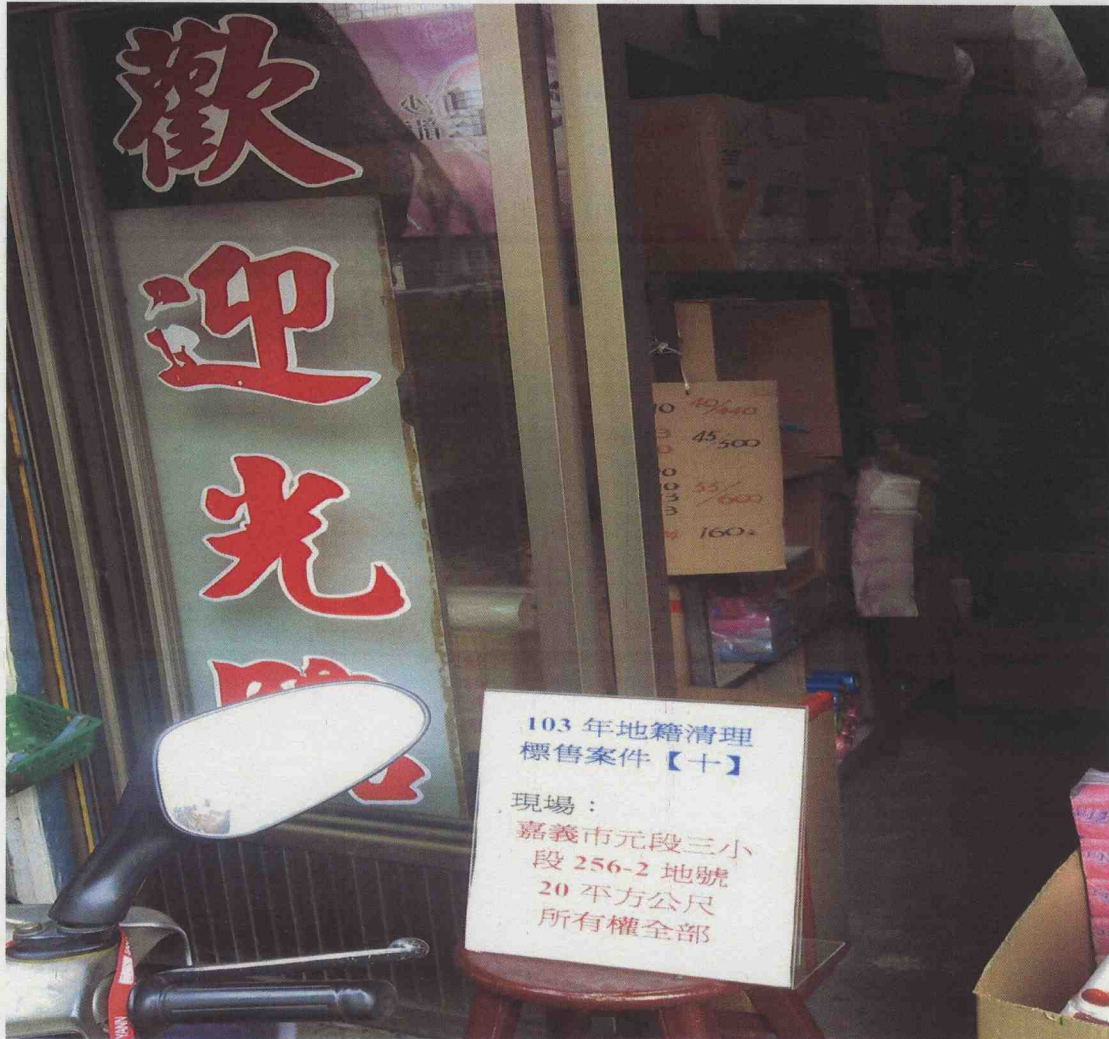 歡
迎
光
臨
40/440
45/500
55/600
160元
103 年地籍清理
標售案件【十】
現場：
嘉義市元段三小
段 256-2 地號
20 平方公尺
所有權全部